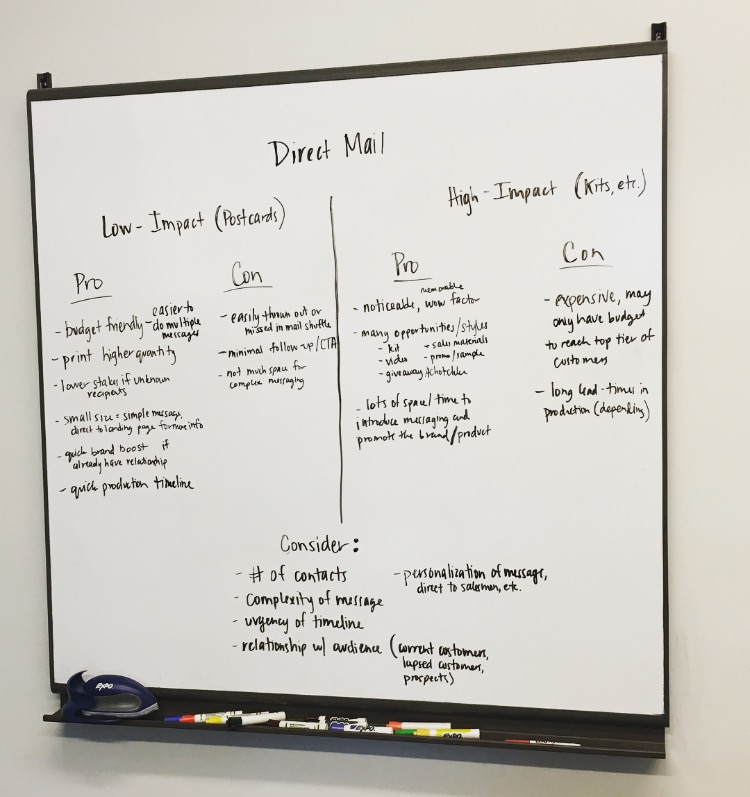 Direct Mail
Low-Impact (Postcards)
Pro
- budget friendly - easier to
do multiple
messages
- print higher quantity
- lower stakes if unknown
recipients
- small size = simple message,
direct to landing page for more info
- quick brand boost if
already have relationship
- quick production timeline
Con
- easily thrown out or
missed in mail shuffle
- minimal follow-up/CTA
- not much space for
complex messaging
High-Impact (Kits, etc.)
Pro
memorable
- noticeable, wow factor
- many opportunities/styles
- kit
- video
- giveaway/tchotchke
- sales materials
- promo/sample
- lots of space/time to
introduce messaging and
promote the brand/product
Con
- expensive, may
only have budget
to reach top tier of
customers
- long lead-times in
production (depending)
Consider:
- # of contacts
- complexity of message
- urgency of timeline
- relationship w/ audience (current customers,
lapsed customers,
prospects)
- personalization of message,
direct to salesmen, etc.
EXPO
EXPO
EXPO